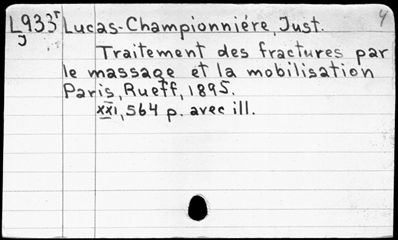 L933r Lucas-Championniére, Just. 4
J Traitement des fractures par
le massage et la mobilisation
Paris, Rueff, 1895.
xxi, 564 p. avec ill.